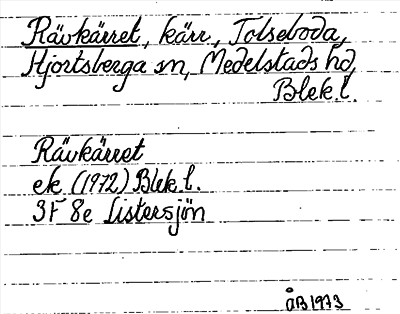 Rävkärret, kärr, Tolseboda,
Hjortsberga sn, Medelstads hd,
Blek l.
Rävkärret
ek (1972) Blek l.
3F 8e Listersjön
ÅB 1973